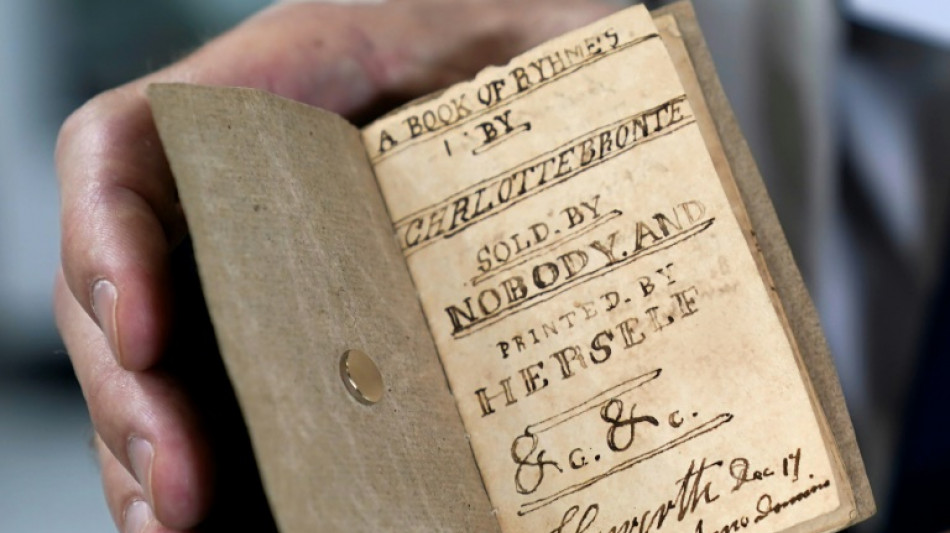 A BOOK OF RYHMES
BY
CHRLOTTE BRONTE
SOLD. BY
NOBODY. AND
PRINTED. BY
HERSELF
&c. &c.
Haworth Dec 17.
Anno Domino